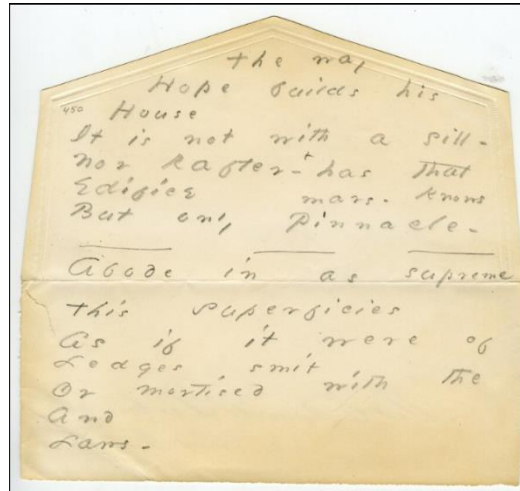 the way
Hope builds his
450
House
It is not with a sill -
Nor Rafter - + has that
Edifice mars - Knows
But only Pinnacle -
Abode in as supreme
This superficies
As if it were of
Ledges smit
Or mortised with the
And
Laws -